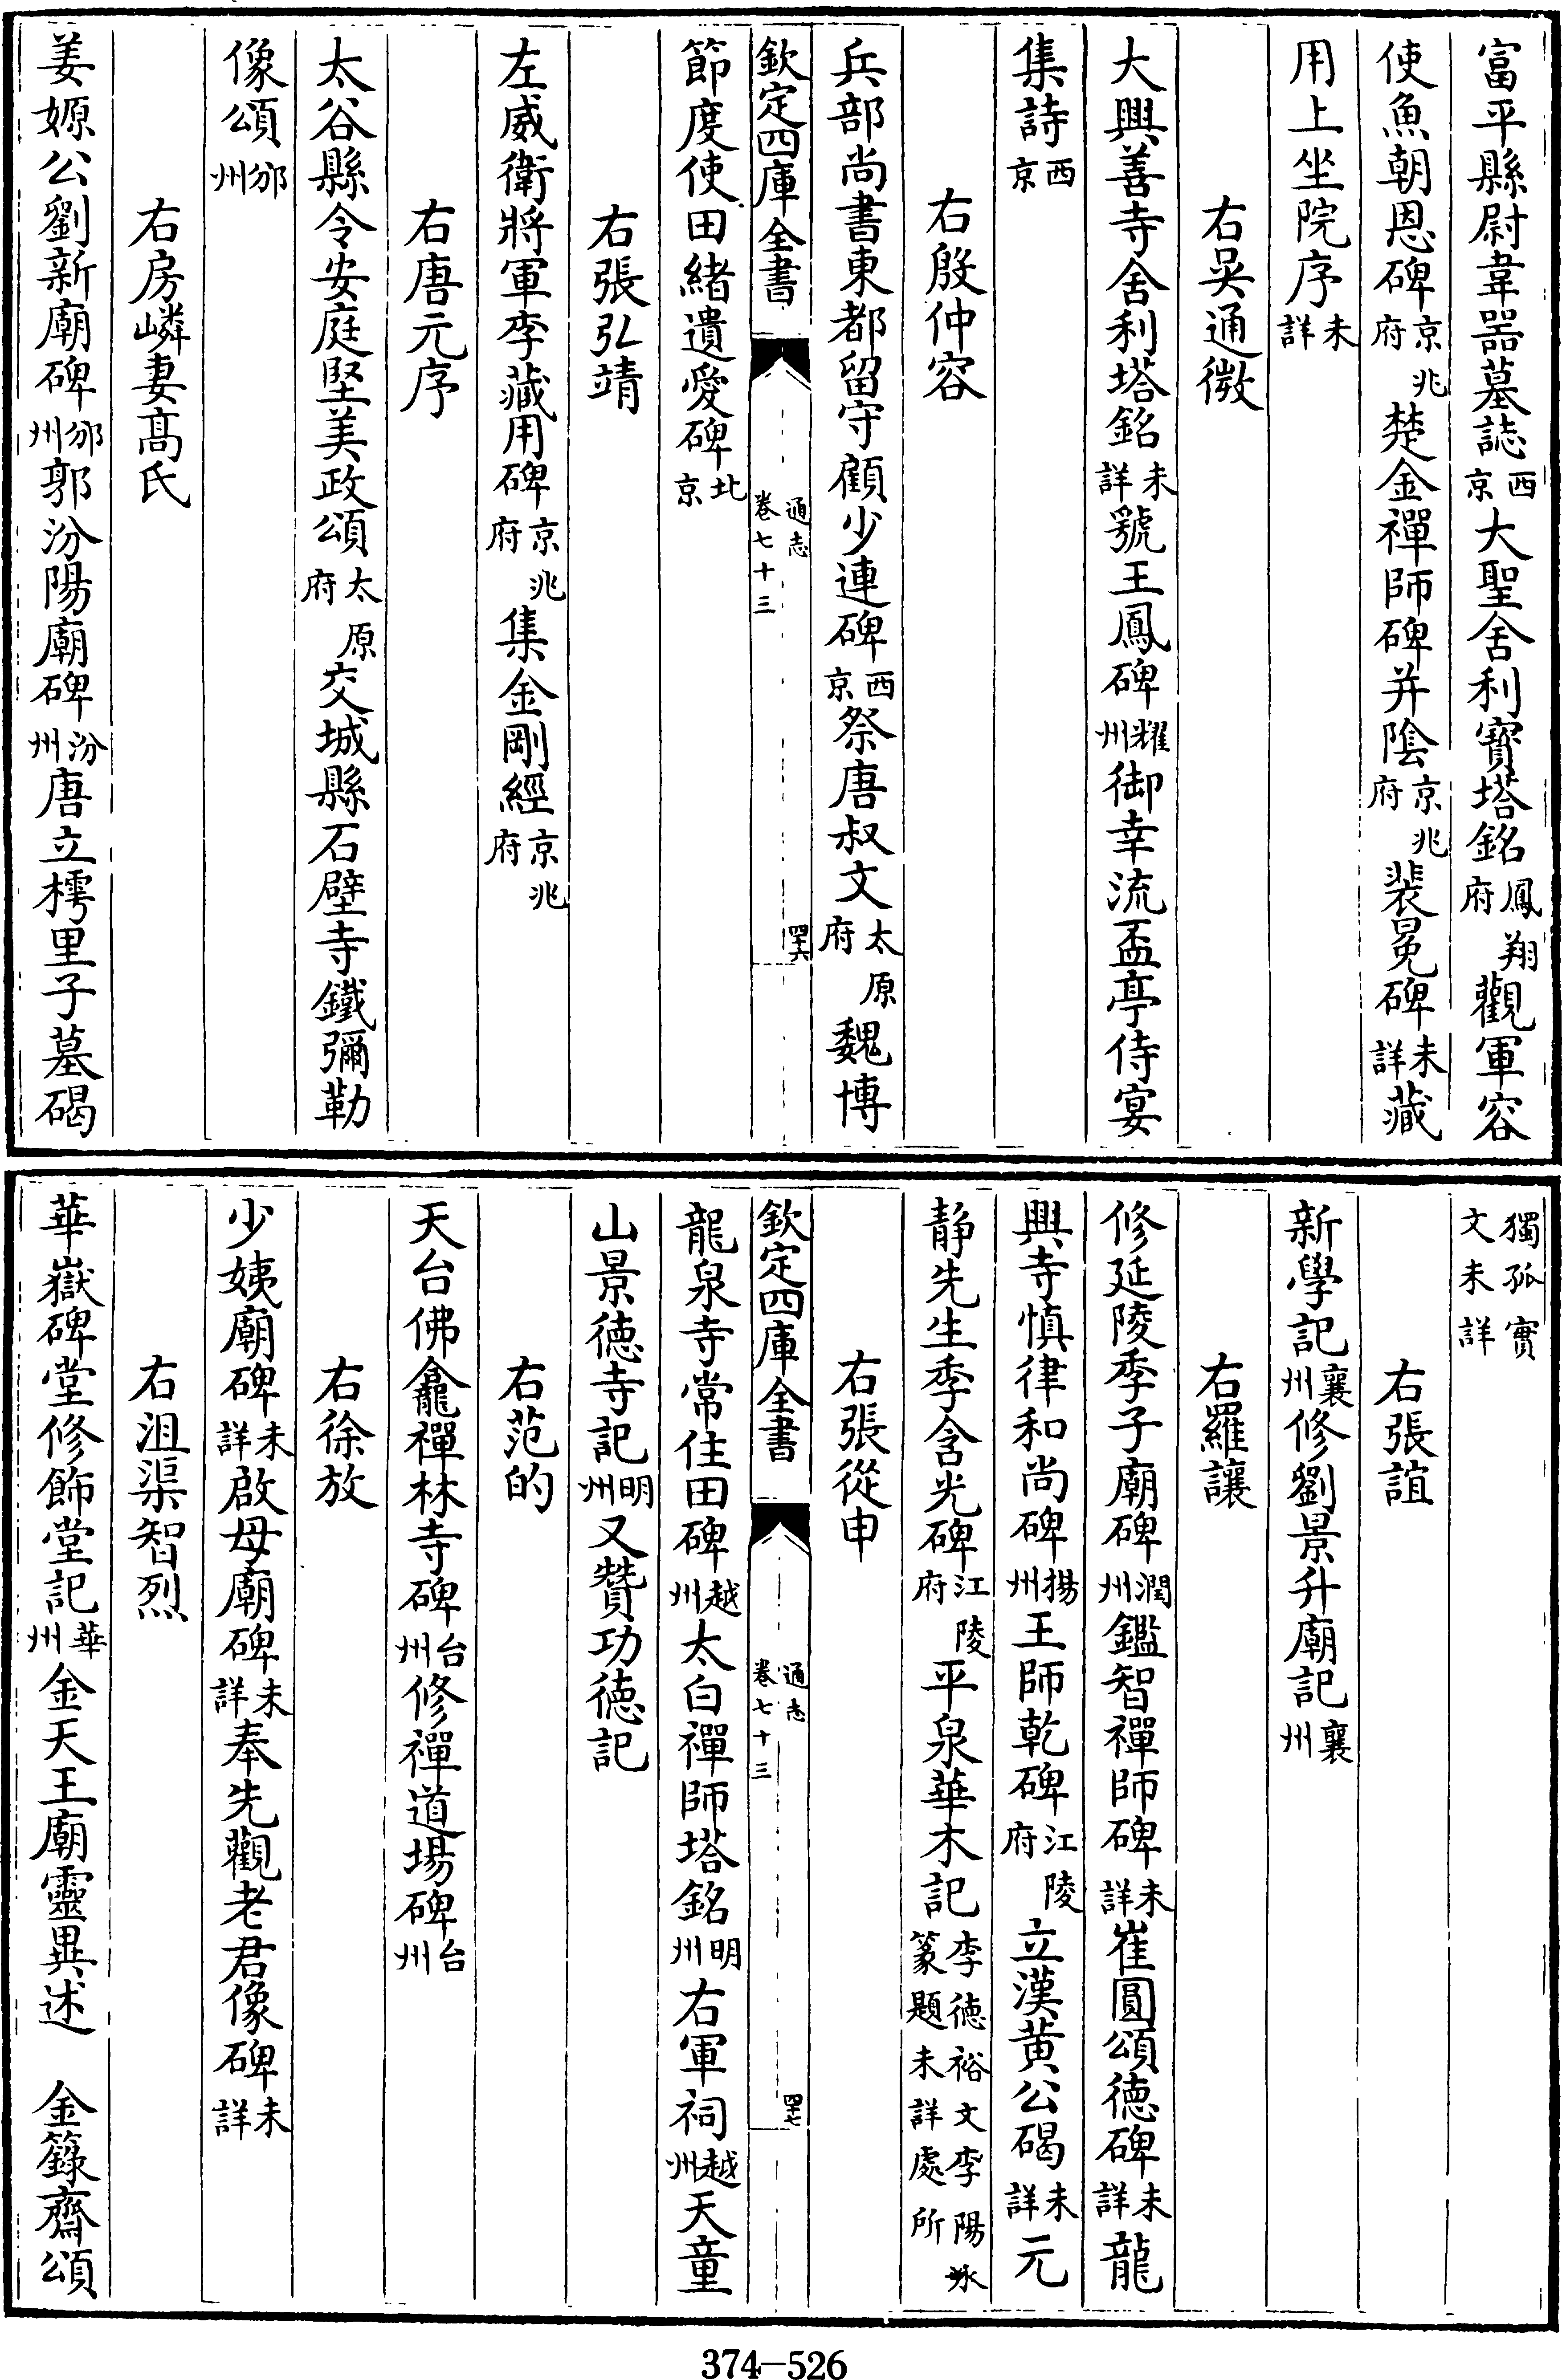 富平縣尉韋器墓誌西京大聖舍利寶塔銘鳳翔府觀軍容
使魚朝恩碑京兆府楚金禪師碑并陰京兆府裴冕碑未詳藏
用上坐院序未詳
右吳通微
大興善寺舍利塔銘未詳虢王鳳碑耀州御幸流盃亭侍宴
集詩西京
右殷仲容
兵部尚書東都留守顧少連碑西京祭唐叔文太原府魏博
欽定四庫全書 通志卷七十三 四十六
節度使田緒遺愛碑北京
右張弘靖
左威衛將軍李藏用碑京兆府集金剛經京兆府
右唐元序
太谷縣令安庭堅美政頌太原府交城縣石壁寺鐵彌勒
像頌邠州
右房嶙妻髙氏
姜嫄公劉新廟碑邠州郭汾陽廟碑汾州唐立樗里子墓碣
獨孤寔文未詳
右張誼
新學記襄州修劉景升廟記襄州
右羅讓
修延陵季子廟碑潤州鑑智禪師碑未詳崔圓頌德碑未詳龍
興寺慎律和尚碑揚州王師乾碑江陵府立漢黄公碣未詳元
静先生季含光碑江陵府平泉華木記李德裕文李陽氷篆題未詳處所
右張從申
欽定四庫全書 通志卷七十三 四十七
龍泉寺常住田碑越州太白禪師塔銘明州右軍祠越州天童
山景徳寺記明州又贊功徳記
右范的
天台佛龕禪林寺碑台州修禪道場碑台州
右徐放
少姨廟碑未詳啟母廟碑未詳奉先觀老君像碑未詳
右沮渠智烈
華嶽碑堂修飾堂記華州金天王廟靈異述 金籙齋頌
374-526